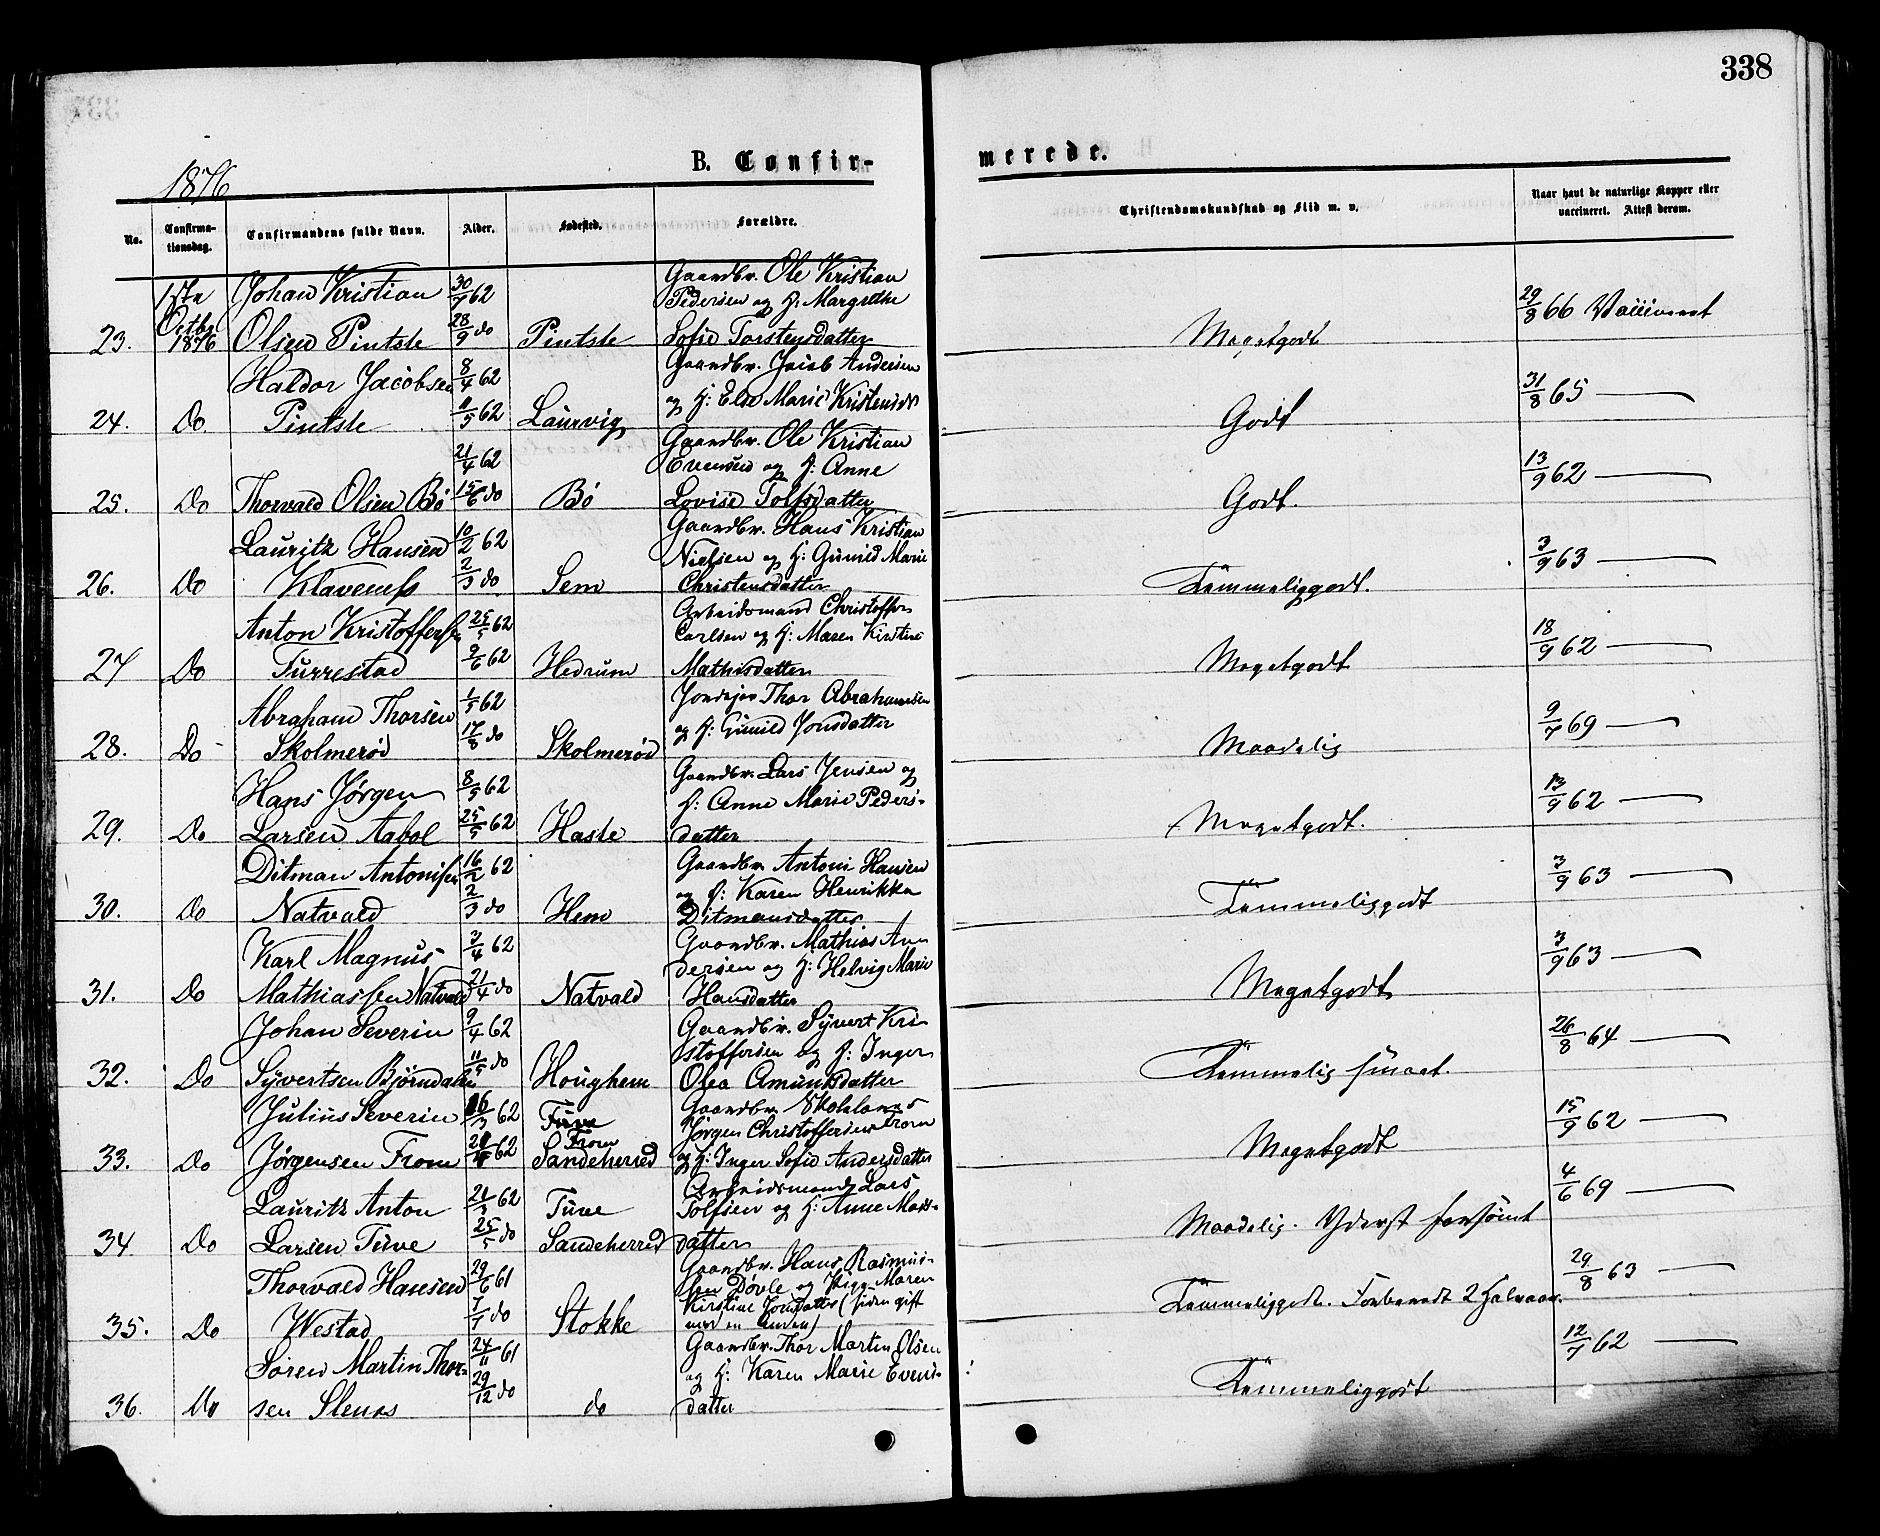 338
1876
B. Confir-
merede.
No.
Confirma-
tionsdag.
Confirmandens fulde Navn.
Alder.
Fødested.
Forældre.
Christendomskundskab og Flid m. v.
Naar havt de naturlige Kopper eller
vaccineret. Attest derom.
23. 1ste Octbr 1876
Johan Kristian
Olsen Pintsle
30/7 62
28/9 do
Pintsle
Gaardbr. Ole Kristian
Pedersen og H: Margrethe
Sofie Torstensdatter
Megetgodt
29/8 66 Vaccineret
24. Do
Haldor Jacobsen
Pintsle
8/4 62
11/5 62
Laurvig
Gaardbr. Jacob Andersen
og H: Else Marie Kristensdt
Godt
31/8 65
25. Do
Thorvald Olsen Bö
21/4 62
15/6 do
Bö
Gaardbr. Ole Kristian
Evensen og H: Anne
Lovise Tolfsdatter
Godt.
13/9 62
26. Do
Lauritz Hansen
Klaveness
10/2 62
2/3 do
Sem
Gaardbr. Hans Kristian
Nielsen og H: Gunild Marie
Christensdatter
Temmeliggodt.
3/9 63
27 Do
Anton Kristoffersen
Furrestad
25/5 62
9/6 62
Hedrum
Arbeidsmand Christoffer
Carlsen og H: Maren Kirstine
Mathisdatter
Megetgodt
18/9 62
28. Do
Abraham Thorsen
Skolmerød
1/5 62
17/8 do
Skolmerød
Jordejer Thor Abrahamsen
og H: Gunild Jonsdatter
Maadelig
9/7 69
29. Do
Hans Jørgen
Larsen Aabol
8/5 62
25/5 62
Hasle
Gaardbr. Lars Jensen og
H: Anne Marie Peders-
datter
Megetgodt.
13/9 62
30. Do
Ditman Antonisen
Natvald
16/2 62
2/3 do
Hem
Gaardbr. Antoni Hansen
og H: Karen Henrikka
Ditmansdatter
Temmeliggodt
3/9 63
31. Do
Karl Magnus
Mathiassen Natvald
3/4 62
21/4 do
Natvald
Gaardbr. Mathias An-
dersen og H: Helvig Marie
Hansdatter
Megetgodt
3/9 63
32. Do
Johan Severin
Syvertsen Bjørndalen
9/4 62
11/5 do
Houghem
Gaardbr. Syvert Kri-
stoffersen og H: Inger
Olea Amundsdatter
Temmelig smaat.
26/8 64
33. Do
Julius Severin
Jørgensen From
62
62
From
Sandeherred
Gaardbr.
Jørgen Christoffersen From
og H: Inger Sofie Andersdatter
Megetgodt
15/9 62
34 Do
Lauritz Anton
Larsen Tuve
62
25/5 do
Tuve
Sandeherred
Arbeidsmand Lars
Tolfsen og H: Anne Mads-
datter
Maadelig. Yderst forsømt
4/6 69
35. Do
Thorvald Hansen
Westad
29/6 61
7/7 do
Stokke
Gaardbr. Hans Rasmus-
sen Døvle og Pige Maren
Kirstine Jonsdatter (siden gift
med en anden)
Temmeliggodt. Forberedt 2 Halvaar.
29/8 63
36. Do
Søren Martin Thor-
sen Slenes
24/11 61
29/12 do
do
Gaardbr. Thor Martin Olsen
og H: Karen Marie Evens-
datter
Temmeliggodt
12/7 62